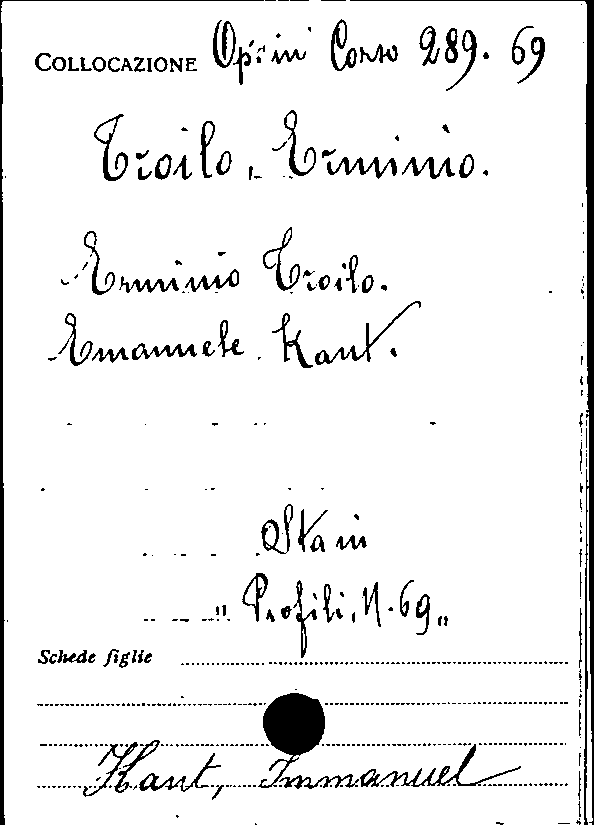 COLLOCAZIONE Op: in Corso 289. 69
Troilo, Erminio.
Erminio Troilo.
Emanuele Kant.
Sta in
"Profili, N. 69"
Schede figlie
Kant, Immanuel